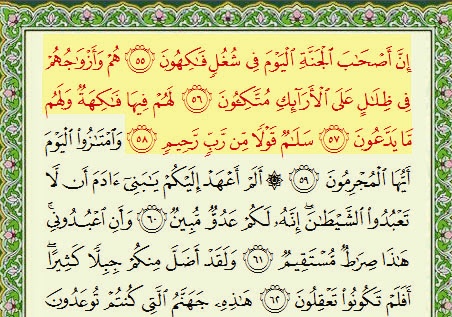 إِنَّ أَصْحَٰبَ ٱلْجَنَّةِ ٱلْيَوْمَ فِى شُغُلٍ فَٰكِهُونَ ٥٥ هُمْ وَأَزْوَٰجُهُمْ
فِى ظِلَٰلٍ عَلَى ٱلْأَرَآئِكِ مُتَّكِـُٔونَ ٥٦ لَهُمْ فِيهَا فَٰكِهَةٌ وَلَهُم
مَّا يَدَّعُونَ ٥٧ سَلَٰمٌ قَوْلًا مِّن رَّبٍّ رَّحِيمٍ ٥٨ وَٱمْتَٰزُوا۟ ٱلْيَوْمَ
أَيُّهَا ٱلْمُجْرِمُونَ ٥٩ ۞ أَلَمْ أَعْهَدْ إِلَيْكُمْ يَٰبَنِىٓ ءَادَمَ أَن لَّا
تَعْبُدُوا۟ ٱلشَّيْطَٰنَ ۖ إِنَّهُۥ لَكُمْ عَدُوٌّ مُّبِينٌ ٦٠ وَأَنِ ٱعْبُدُونِى ۚ
هَٰذَا صِرَٰطٌ مُّسْتَقِيمٌ ٦١ وَلَقَدْ أَضَلَّ مِنكُمْ جِبِلًّا كَثِيرًا ۖ
أَفَلَمْ تَكُونُوا۟ تَعْقِلُونَ ٦٢ هَٰذِهِۦ جَهَنَّمُ ٱلَّتِى كُنتُمْ تُوعَدُونَ